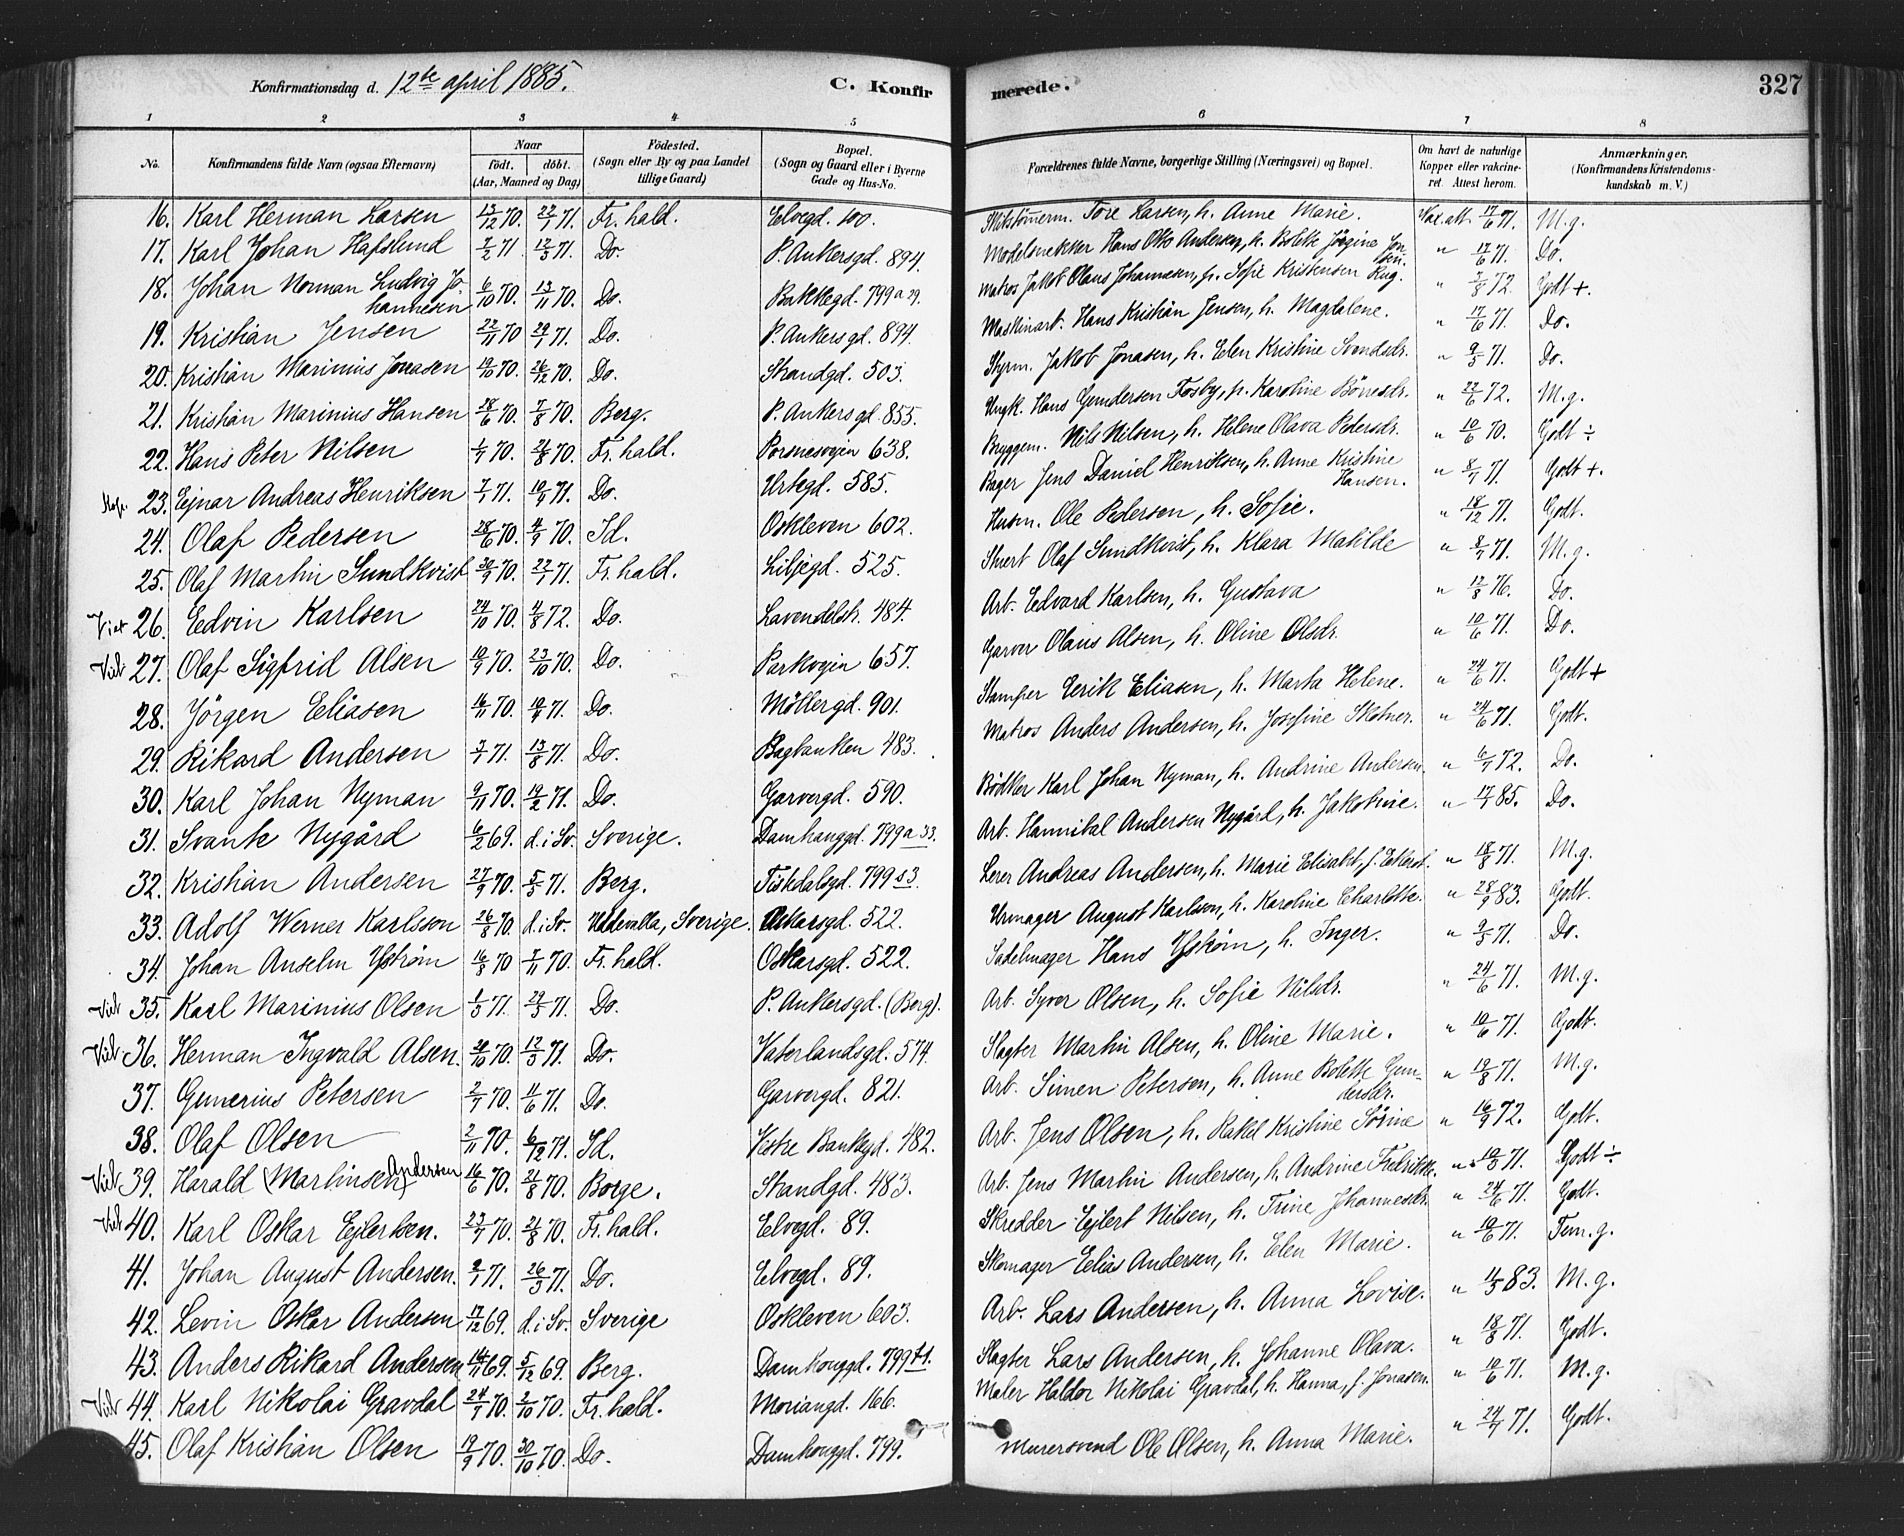 Konfirmationsdag d. 12te april 1885. C. Konfirmerede. 327
1 2 3 4 5 6 7 8
No. Konfirmandens fulde Navn (ogsaa Efternavn) Naar født. døbt. (Aar, Maaned og Dag) Fødested. (Sogn eller By og paa Landet tillige Gaard) Bopæl. (Sogn og Gaard eller i Byerne Gade og Hus-No. Forældrenes fulde Navne, borgerlige Stilling (Næringsvei) og Bopæl. Om havt de naturlige Kopper eller vakcineret. Attest herom. Anmærkninger. (Konfirmandens Kristendomskundskab m. V.)
16. Karl Herman Larsen 13/12 70. 22/1 71. Fr.hald. Elvegd. 100. Tore Larsen, h. Anne Marie. Vax.att. 17/6 71. M.g.
17. Karl Johan Hafslund 7/2 71. 12/3 71. Do. P. Ankersgd. 894. Modelsnekker Hans Otto Andersen, h. Bolette Jørgine Jonsen. " 17/6 71. Do.
18. Johan Norman Ludvig Johannesen 6/10 70. 13/11 70. Do. Bakkegd. 799 a 29. Matros Jakob Olaus Johannesen, h. Sofie Kristensen Rug. " 7/8 72. Godt +.
19. Kristian Jensen 22/11 70 29/1 71. Do. P. Ankersgd. 894. Maskinarb. Hans Kristian Jensen, h. Magdalene. " 17/6 71. Do.
20. Kristian Marinius Jonasen 19/10 70. 26/12 70. Do. Strandgd. 503. Styrm. Jakob Jonasen, h. Elen Kristine Svendsdr. " 9/5 71. Do.
21. Kristian Marinius Hansen 28/6 70. 7/8 70. Berg. P. Ankersgd. 855. Ungk. Hans Gundersen Fosby, h. Karoline Børresdr. " 22/6 72. M.g.
22. Hans Peter Nilsen 1/7 70. 21/8 70. Fr.hald. Porsnesvejen 638. Bryggem. Nils Nilsen, h. Helene Olava Pedersdr. " 10/6 70. Godt ÷
23. Ejnar Andreas Henriksen 7/1 71. 10/4 71. Do. Urtegd. 585. Bager Jens Daniel Henriksen, h. Anne Kristine Hansen. " 8/7 71. Godt +.
24. Olaf Pedersen 28/6 70. 4/9 70. Id. Oskleven 602. Husm. Ole Pedersen, h. Sofie. " 18/12 71. Godt.
25. Olaf Martin Sundkvist 30/9 70. 22/1 71. Fr.hald. Liljegd. 525. Stuert Olaf Sundkvist, h. Klara Matilde " 8/7 71. M.g.
26. Edvin Karlsen 24/10 70. 4/8 72. Do. Lavendelstr. 484. Arb. Edvard Karlsen, h. Gustava " 12/8 76. Do.
27. Olaf Sigfrid Alsen 10/9 70. 23/10 70. Do. Parkvejen 657. Garver Olaus Alsen, h. Oline Olsdr. " 10/6 71. Do.
28. Jörgen Eliasen 16/11 70. 10/4 71. Do. Möllergd. 901. Stamper Eerik Eliasen, h. Marta Helene. " 24/6 71. Godt +
29. Rikard Andersen 3/1 71. 13/8 71. Do. Bagbanken 483. Matros Anders Andersen, h. Josefine Skotner. " 24/6 71. Godt.
30. Karl Johan Nyman 9/11 70. 19/2 71. Do. Garvergd. 590. Bödker Karl Johan Nyman, h. Andrine Andersen. " 6/7 72. Do.
31. Svante Nygård 6/2 69. d. i Sv. Sverige. Damhauggd. 799 a 33. Arb. Hannibal Andersen Nygård, h. Jakobine. " 17/1 85. Do.
32. Kristian Andersen 27/9 70. 5/3 71. Berg. Fiskdalsgd. 799 s 3. Lerer Andreas Andersen, h. Marie Elisabet, " 18/8 71. M.g.
33. Adolf Werner Karlsson 26/8 70. d. i Sv. Uddevalla, Sverige. Oskarsgd. 522. Urmager August Karlson, h. Karoline Charlotte. " 28/9 83. Godt.
34. Johan Anselm Ystrøm 16/8 70 7/11 70. Fr.hald. Oskarsgd. 522. Sadelmager Hans Ystrøm, h. Inger. " 9/5 71. Do.
35. Karl Marinius Olsen 1/3 71. 29/5 71. Do. P. Ankersgd. (Berg). Arb. Syver Olsen, h. Sofie Nilsdr. " 24/6 71. M.g.
36. Herman Ingvald Alsen. 20/10 70. 12/3 71. Do. Vaterlandsgd. 574. Slagter Martin Alsen, h. Oline Marie. " 10/6 71. Godt.
37. Gunerius Petersen 2/7 70. 11/6 71. Do. Garvergd. 821. Arb. Simen Petersen, h. Anne Bolette Gundersdr. " 19/8 71. M.g.
38. Olaf Olsen 2/11 70. 6/12 71. Id. Vestre Bankegd. 482. Arb. Jens Olsen, h. Rakel Kristine Sörine " 16/9 72. Godt.
39. Harald (Martinsen) Andersen 16/6 70. 21/8 70. Borge. Strandgd. 483. Arb. Jens Martin Andersen, h. Andrine Fredrikke. " 10/3 71. Godt ÷
40. Karl Oskar Ejlertsen. 23/7 70. 21/8 70. Fr.hald. Elvegd. 89. Skredder Ejlert Nilsen, h. Trine Johannesdr. " 24/6 71. Godt.
41. Johan August Andersen. 9/1 71. 26/3 71. Do. Elvegd. 89. Skomager Elias Andersen, h. Elen Marie. " 10/6 71. Tem.g.
42. Levin Oskar Andersen 17/12 69. d. i Sv. Sverige Oskleven 603. Arb. Lars Andersen, h. Anna Lovise. " 11/5 83. M.g.
43. Anders Rikard Andersen 14/11 69. 5/12 69. Berg. Damhauggd. 799 t 1. Slagter Lars Andersen, h. Johanne Olava. " 18/8 71. Godt.
44. Karl Nikolai Gravdal 24/7 70. 2/10 70. Fr.hald. Moriangd. 166. Maler Haldor Nikolai Gravdal, h. Hanna, f. Jonasen. " 10/6 71. M.g.
45. Olaf Kristian Olsen 19/9 70. 30/10 70. Do. Damhauggd. 799. Murersvend Ole Olsen, h. Anna Marie. " 24/7 71. Godt.